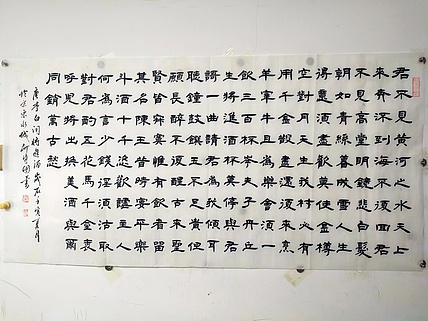 君不見黄河之水天上
来奔流到海不復回君
不見高堂明鏡悲白髮
朝如青絲暮成雪人生
得意須盡歡莫使金樽
空對月天生我材必有
用千金散盡還復来烹
羊宰牛且為樂會須一
飲三百杯岑夫子丹丘
生將進酒杯莫停與君
歌一曲請君為我傾耳
聽鐘鼓饌玉不足貴但
願長醉不復醒古来聖
賢皆寂寞惟有飲者留
其名陳王昔時宴平樂
斗酒十千恣歡謔主人
何為言少錢徑須沽取
對君酌五花馬千金裘
呼兒將出換美酒與爾
同銷萬古愁
唐李白詞將進酒